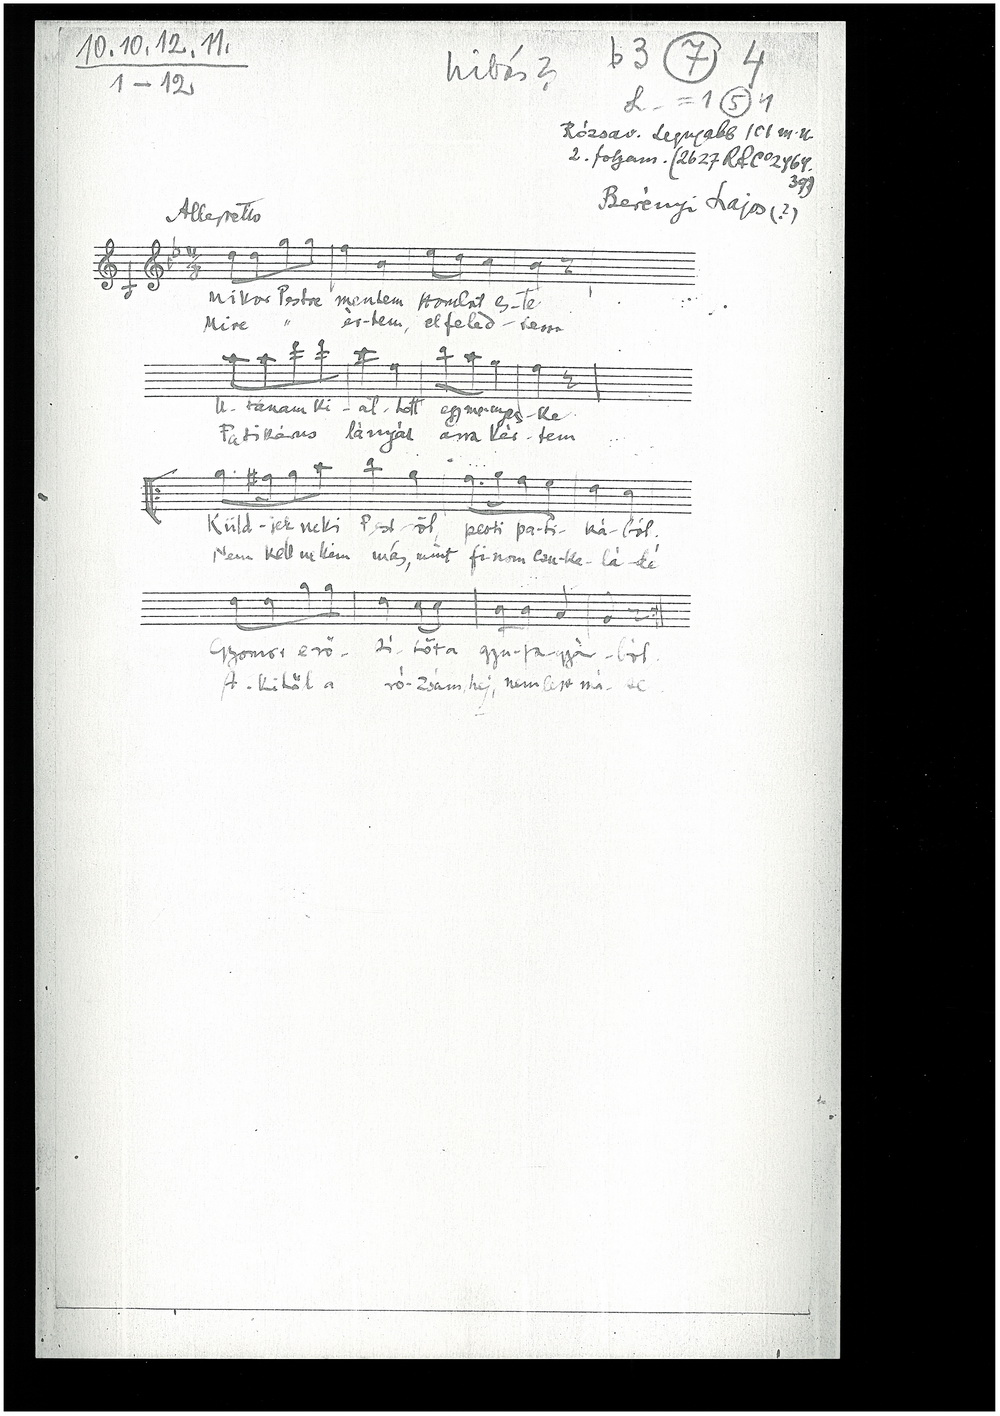 10.10.12.11.
1 – 12
hibás?
b3 (7) 4
= 1 (5) 4
Rózsav. Legujabb 101 m.n.
2. folyam. (2627 R&Co 2464.
39)
Berényi Lajos (?)
Allegretto
Mikor Pestre mentem szombat es-te
Mire " ér-tem, elfeled-tem
U-tánam ki-ál-tott egy menyecs-ke
Patikárus lányát arra kér-tem
Küld-jek neki Pest-ről, pesti pa-ti-ká-ból.
Nem kell nekem más, mint finom csu-ko-lá-dé
Gyomor erő-sí-tőt a
A-kitől a ró-zsám, hej, nem lesz má-sé